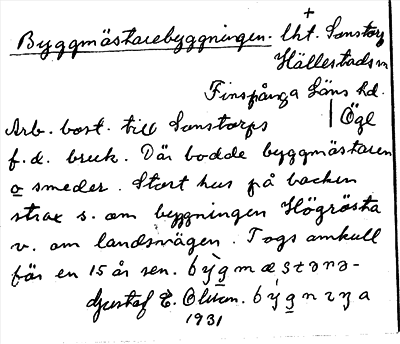 +
Byggmästarebyggningen. lht. Sonstorp
Hällestads sn
Finspånga läns hd.
Arb. bost. till Sonstorps | Ögl
f. d. bruk. Där bodde byggmästaren
o smeder. Stort hus på backen
strax s. om byggningen Högrösta
v. om landsvägen. Togs omkull
för en 15 år sen. bỳgmæstərə-
Gustaf E. Olson. býgnɪŋa
1931